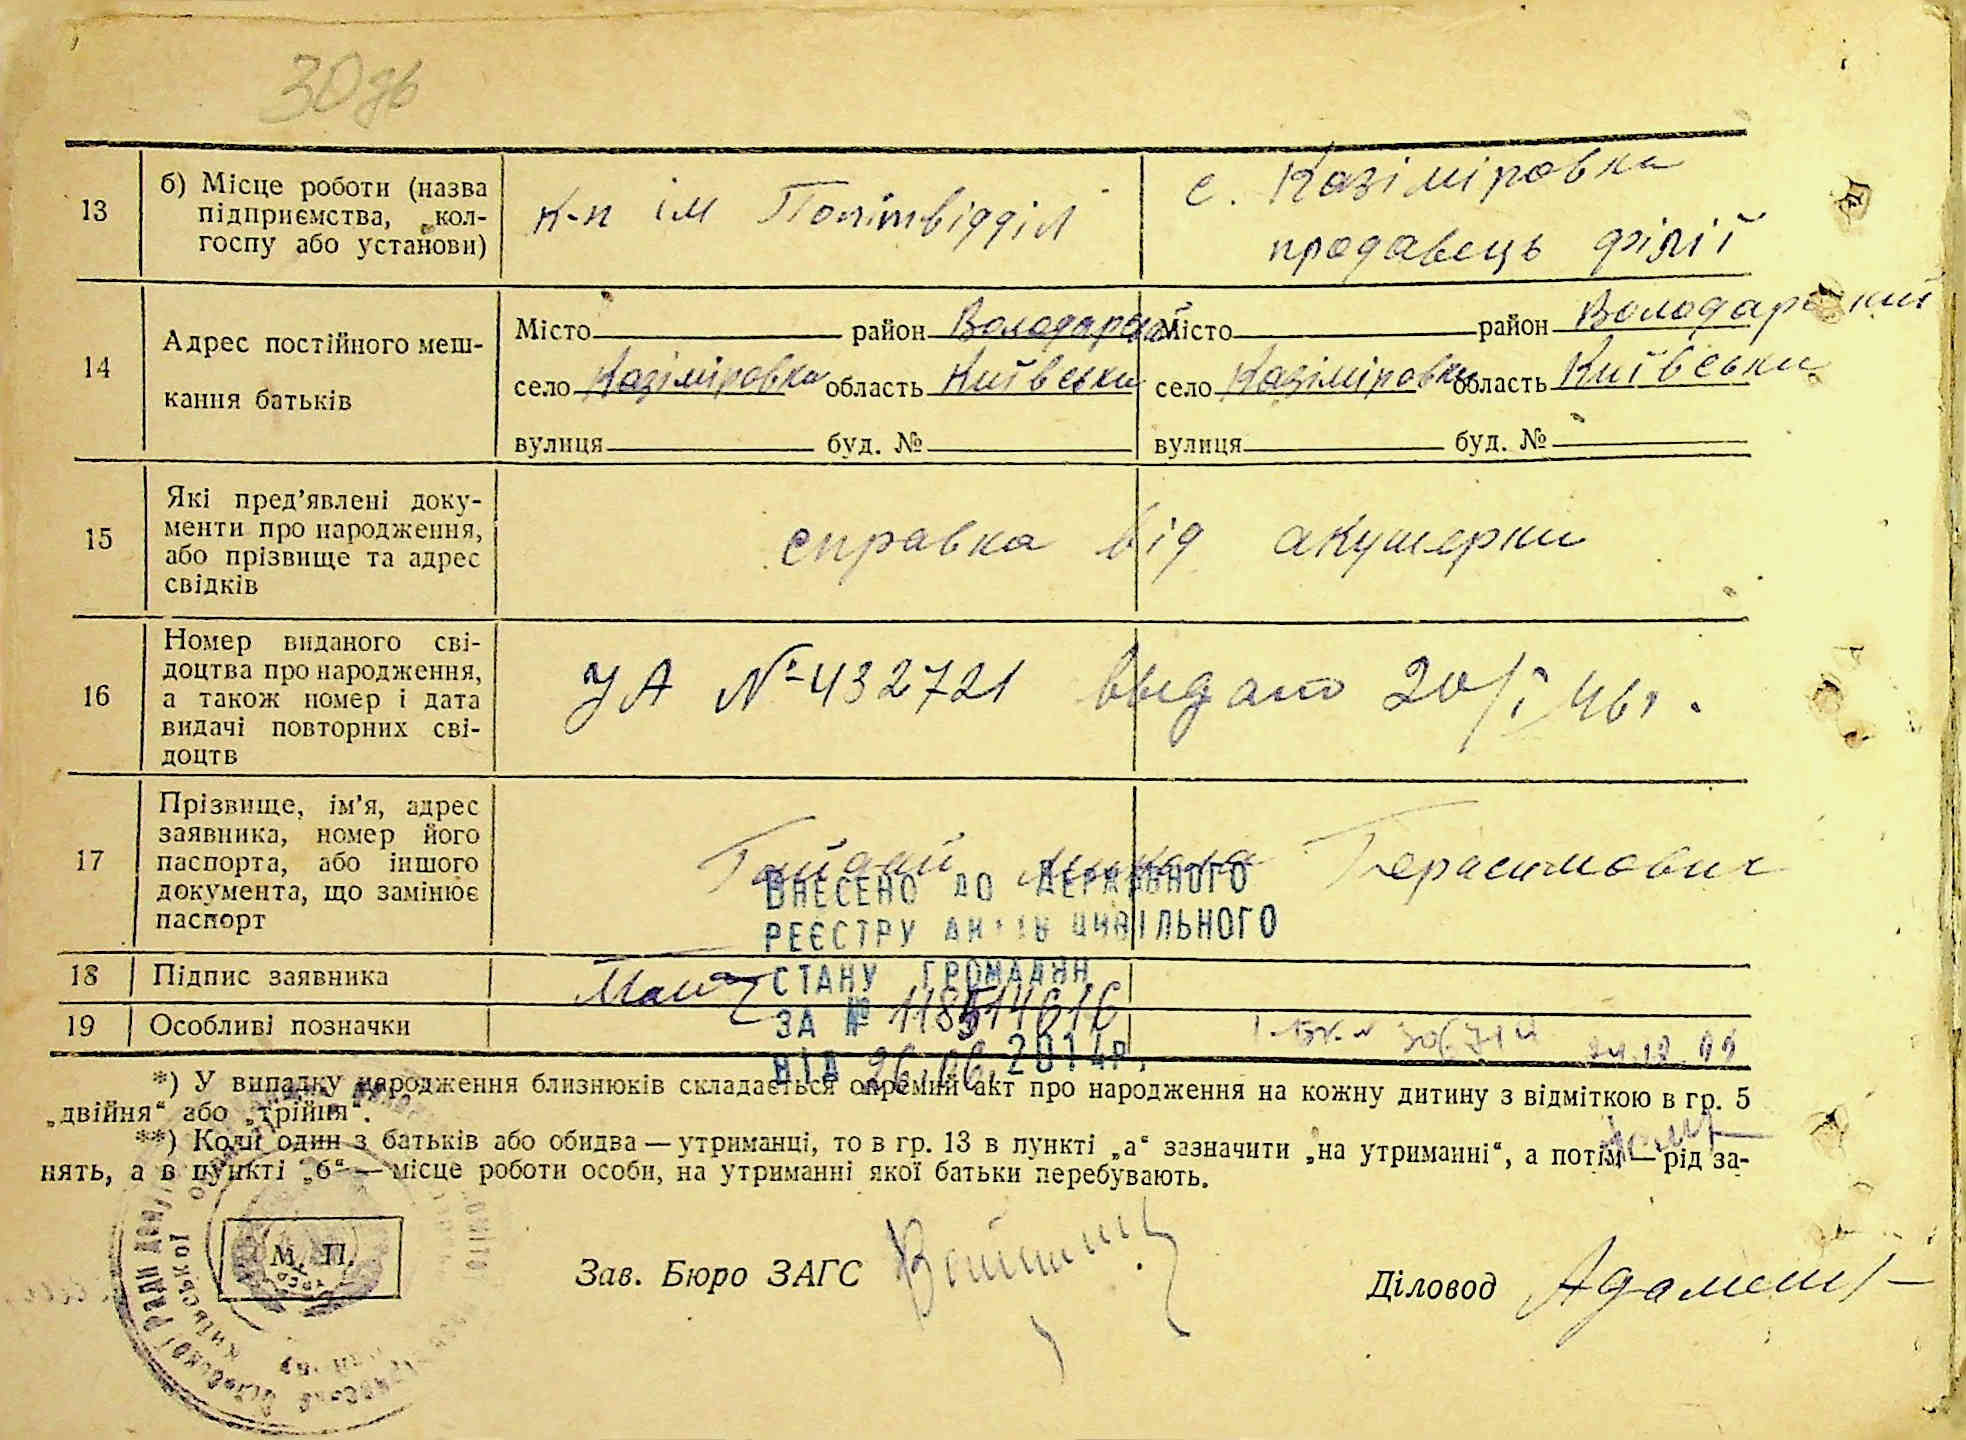 30 зв
13
б) Місце роботи (назва
підприємства, кол-
госпу або установи)
к-п ім Політвідділ
с. Казіміровка
продавець філії
14
Адрес постійного меш-
кання батьків
Місто район Володарський
село Казіміровка область Київська
вулиця буд. №
Місто район Володарський
село Казіміровка область Київська
вулиця буд. №
15
Які пред'явлені доку-
менти про народження,
або прізвище та адрес
свідків
справка від акушерки
16
Номер виданого сві-
доцтва про народження,
а також номер і дата
видачі повторних сві-
доцтв
УА № 432721 видано 20/I 46 г.
17
Прізвище, ім'я, адрес
заявника, номер його
паспорта, або іншого
документа, що замінює
паспорт
Герасимович
ВНЕСЕНО ДО ДЕРЖАВНОГО
РЕЄСТРУ АКТІВ ЦИВІЛЬНОГО
СТАНУ ГРОМАДЯН
ЗА №
ВІД 26.06.2014р.
18
Підпис заявника
19
Особливі позначки
*) У випадку народження близнюків складається окремий акт про народження на кожну дитину з відміткою в гр. 5
„двійня“ або „трійня“.
**) Коли один з батьків або обидва — утриманці, то в гр. 13 в пункті „а“ зазначити „на утриманні“, а потім — рід за-
нять, а в пункті „б“ — місце роботи особи, на утриманні якої батьки перебувають.
М. П.
Зав. Бюро ЗАГС
Діловод